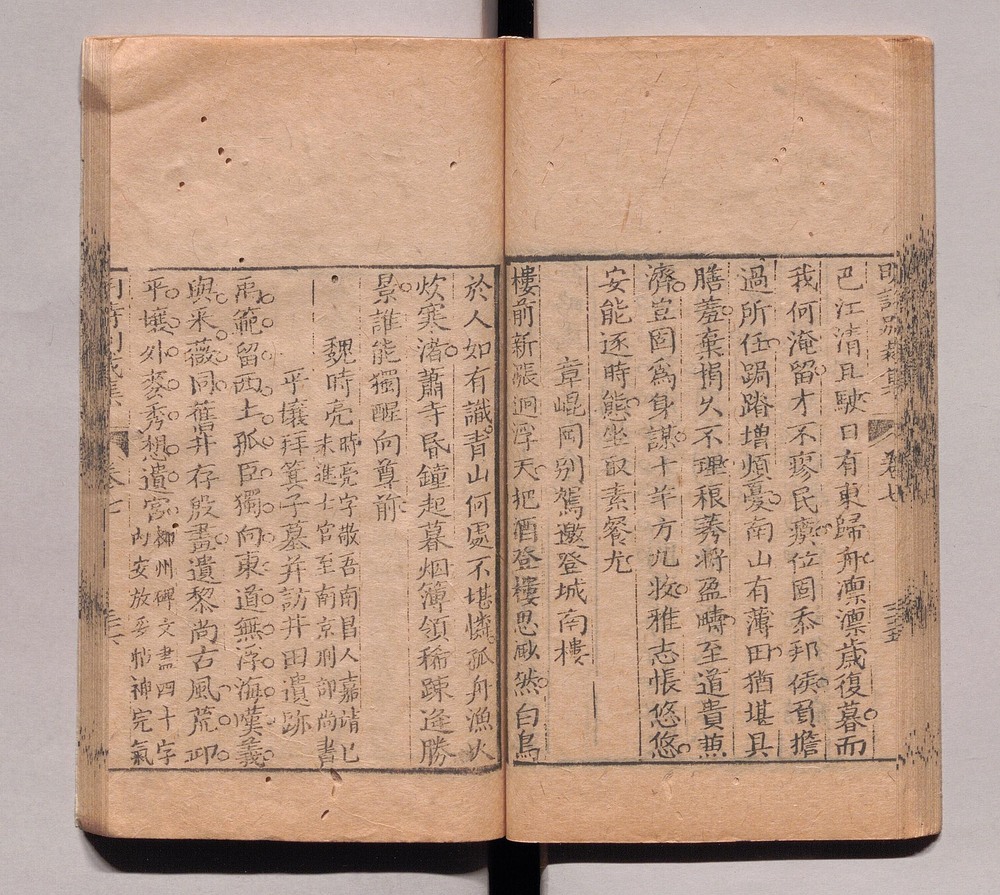 明詩別裁集 卷七 三五
巴江清且駛日有東歸舟凛凛歲復暮而
我何淹留才不瘳民瘼位固忝邦侯負擔
過所任跼蹐增煩憂南山有薄田猶堪具
膳羞棄捐久不理稂莠將盈疇至道貴兼
濟豈圖為身謀十羊方九牧雅志悵悠悠
安能逐時態坐取素餐尤
章崐岡別駕邀登城南樓
樓前新漲迥浮天把酒登樓思颯然白鳥
於人如有識青山何處不堪憐孤舟漁火
炊寒渚蕭寺昏鐘起暮烟簿領稀踈逢勝
景誰能獨醒向尊前
魏時亮時亮字敬吾南昌人嘉靖己未進士官至南京刑部尚書
平壤拜箕子墓并訪井田遺跡
禹範留西土孤臣獨向東道無浮海嘆義
與采薇同舊井存殷畫遺黎尚古風荒邱
平壤外麥秀想遺宮柳州碑文盡四十字內安放妥帖神完氣
明詩別裁集 卷七 三六